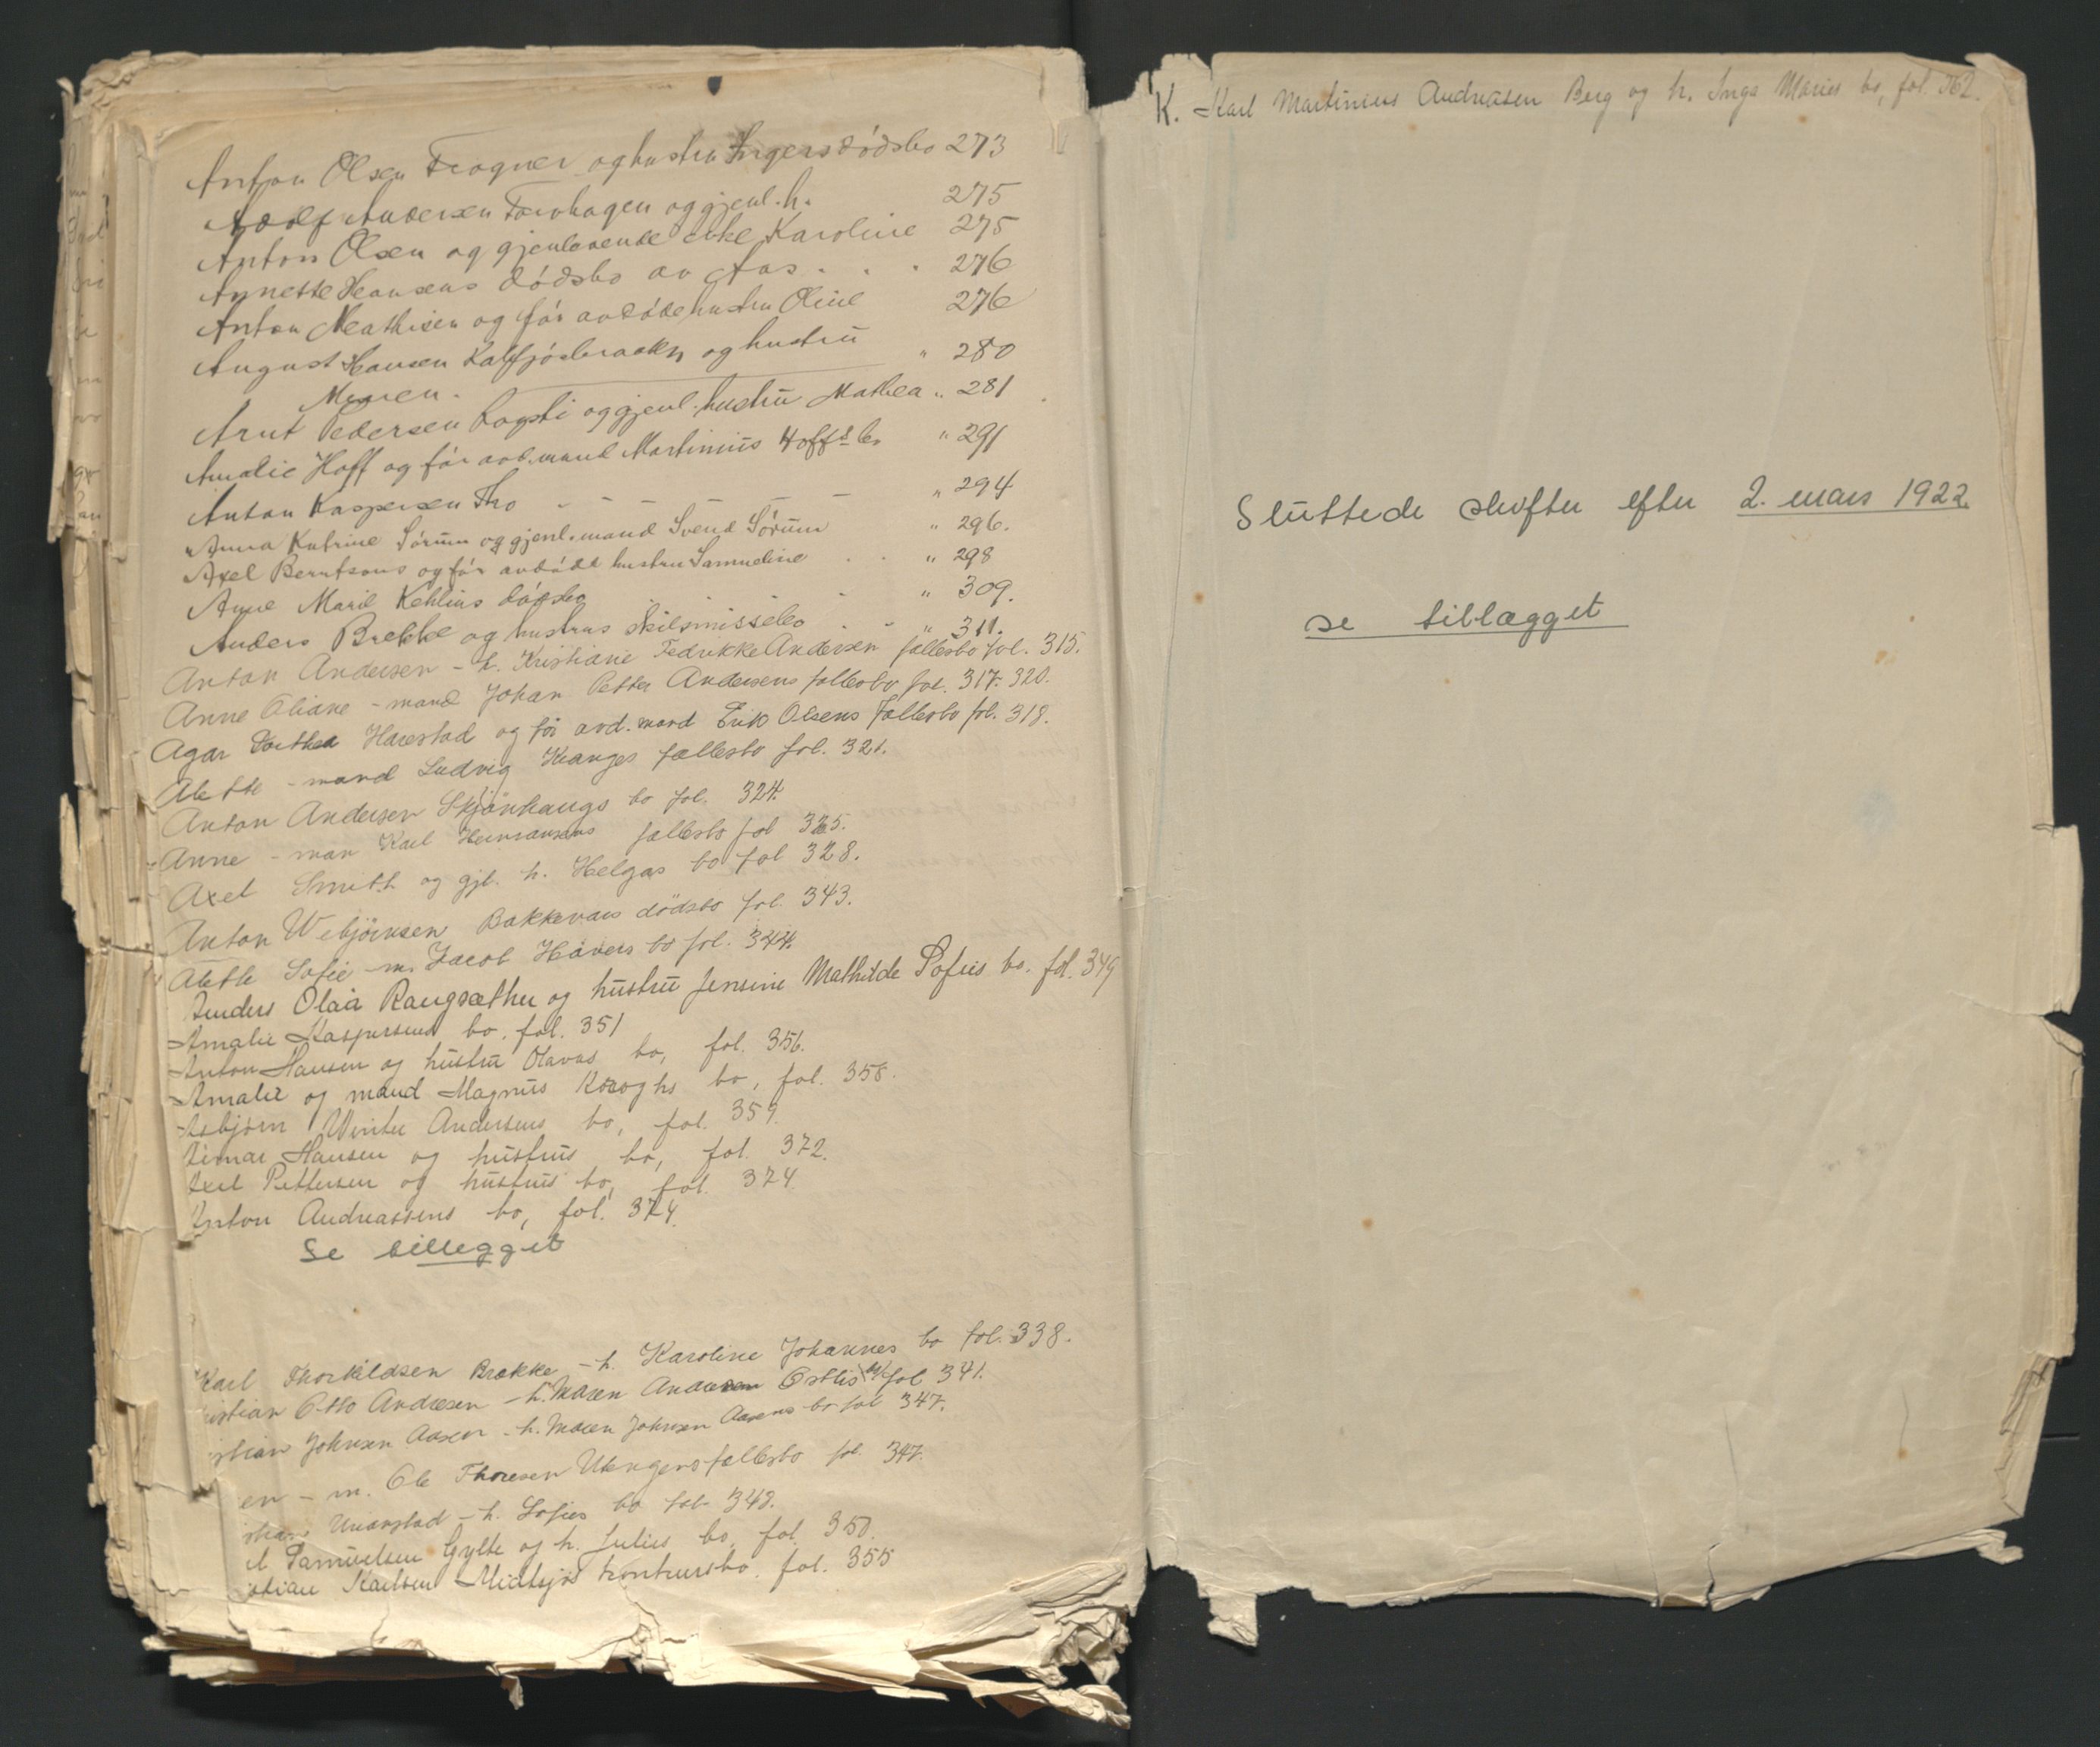 Anton Olsen Frogner og hustru Ingers dödsbo 273
Adolf Andersen Torvhagen og gjenl. h. 275
Anton Olsen og gjenlevende enke Karoline 275
Annette Hansens dödsbo av Aas . . . 276
Anton Mathisen og för avdöde hustru Oline 276
August Hansen og hustru
Maren. " 280
Arnt Pedersen og gjenl. hustru Mathea " 281
Amalie Hoff og för avd. mand Martinius Hoffs bo " 291
Anton Kaspersen Tho - - - - - " 294
Anna Katrine Sörum og gjenl. mand Svend Sörum " 296.
Axel Berntsens og för avdöde hustru Samueline . . " 298
Anne Marie Kehlins dödsbo . . . " 309.
Anders Brekke og hustrus skilsmissebo . . " 311.
Anton Andersen - h. Kristiane Fedrikke Andersen fællesbo fol. 315.
Anne Oliane - mand Johan Petter Andersens fællesbo fol. 317. 320.
Agar Dorthea Harestad og för avd. mand Erik Olsens Fællesbo fol. 318.
Alette - mand Ludvig Kranges fællesbo fol. 321.
Anton Andersen Skjönhaugs bo fol. 324.
Anne - man Karl Hermansens fællesbo fol 325.
Axel Smith og gjl. h. Helgas bo fol 328.
Anton Webjörnsen Bakkevars dödsbo fol. 343.
Alette Sofie - m. Jacob Havers bo fol. 344.
Anders Olaia Raugsæther og hustru Jensine Mathilde Sofies bo. fol. 349
Amalie Kaspersens bo. fol. 351
Anton Hansen og hustru Olavas bo, fol. 356.
Amalie og mand Magnus Kroghs bo, fol. 358.
Asbjörn Winter Andersens bo, fol. 359.
Hansen og hustrus bo, fol. 372.
Axel Pettersen og hustrus bo, fol. 374
Anton Andreassens bo, fol. 374.
Se tillegget
Karl Thorkildsen Brække - h. Karoline Johannes bo fol. 338.
istian Otto Andresen - h. Maren Andresen Östlis bo fol 341.
istian Johnsen Aasen - h. Maren Johnsen Aasens bo fol 347.
en - m. Ole Thoresen Utengens fællesbo fol. 347.
stian Unanstad - h. Sofies bo fol 348.
l Samuelsen Gylte og h. Julies bo, fol. 350.
istian Karlsen Midtsjös konkursbo. fol. 355
K. Karl Martinius Andreasen Berg og h. Inga Maries bo, fol. 362.
Sluttede skifter efter 2. mars 1922.
se tillægget